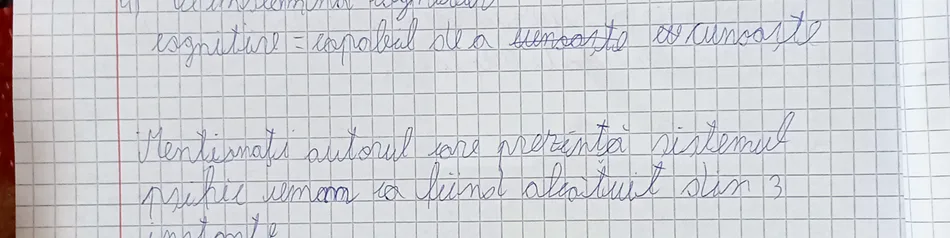 cognitive = capabil de a cunoaste
Mentionați autorul care prezintă sistemul
psihic uman ca fiind alcătuit din 3
instante